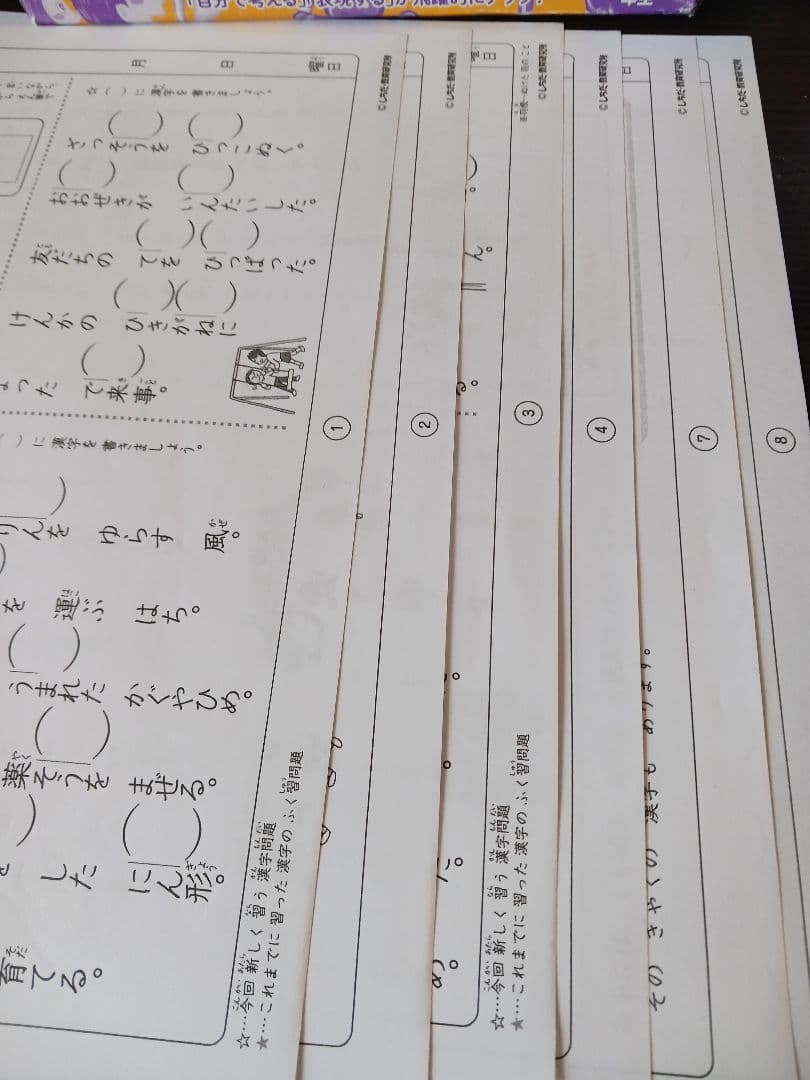 「自分で考える」「表現する」が飛躍的にアップ!
月　日　曜日
☆( )に 漢字を 書きましょう。
さっそうを ひっこぬく。
おおぜきが いんたいした。
友だちの てを ひっぱった。
けんかの ひきがねに
った で来事。
に 漢字を 書きましょう。
りんを ゆらす 風。
を 運ぶ はち。
うまれた かぐやひめ。
薬そうを まぜる。
した にん形。
育てる。
☆…今回 新しく 習う 漢字問題
★…これまでに 習った 漢字の ふく習問題
①
©しちだ・教育研究所
②
©しちだ・教育研究所
日
ん。
る。
た。
め。
☆…今回 新しく 習う 漢字問題
★…これまでに 習った 漢字の ふく習問題
③
©しちだ・教育研究所
④
©しちだ・教育研究所
日
その きやくの 漢字も あります。
⑦
©しちだ・教育研究所
⑧
©しちだ・教育研究所